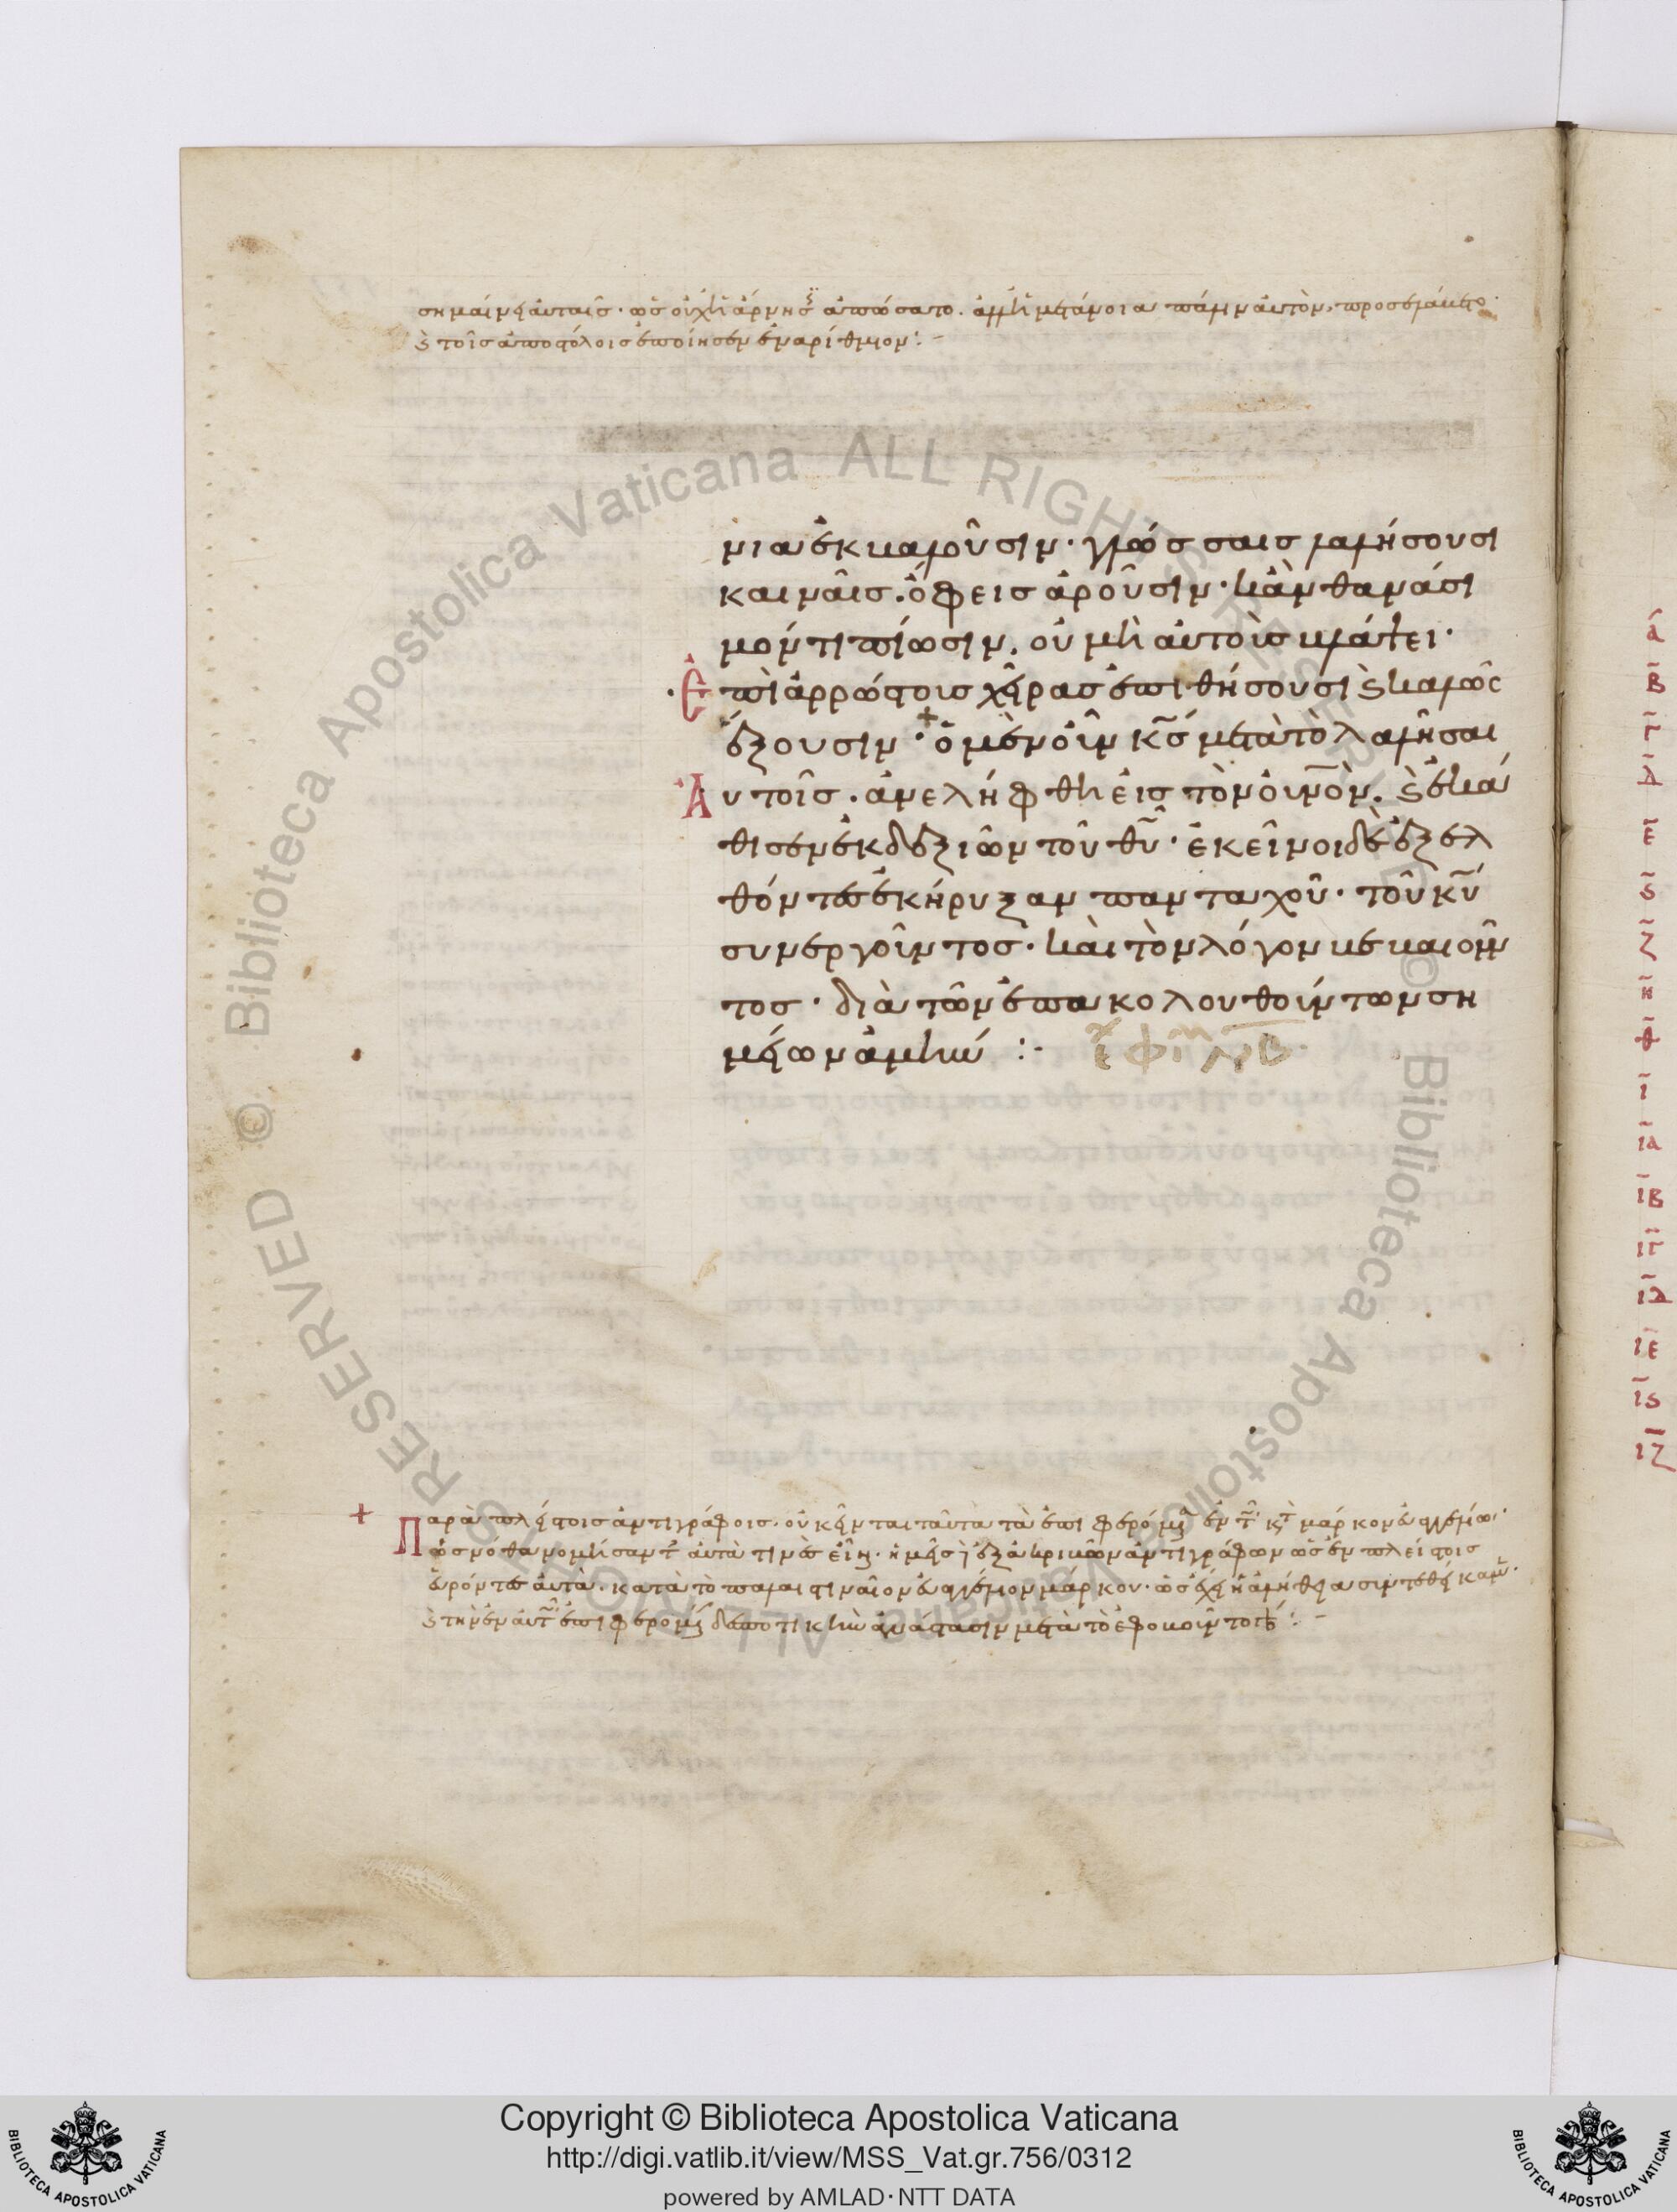 σημαίνει αὐταῖς· ὡς οὐχὶ ἀρνησ ἀπώσατο. ἀλλὰ μετάνοιαν πάλιν αὐτὸν, προσελάβετο·
ϗ τοῖς ἀποστόλοις ἐποίησεν ἐναρίθμιον:-
νια ἐκβαλοῦσιν· γλώσσαις λαλήσουσι
καιναῖς. ὄφεις ἀροῦσιν· κἂν θανάσι
μόν τι πίωσιν. οὐ μὴ αὐτοὺς βλάψει·
Ἐπὶ ἀρρώστοις χεῖρας ἐπιθήσουσι ϗ καλῶς
ἕξουσιν· + ὁ μὲν οὖν κ̅ς μετὰ τὸ λαλῆσαι
Αὐτοῖς. ἀνελήφθη εἰς τὸν οὐ̅νόν. ϗ ἐκά
θισεν ἐκ δεξιῶν τοῦ θ̅υ· ἐκεῖνοι δὲ ἐξελ
θόντες ἐκήρυξαν πανταχοῦ· τοῦ κ̅υ
συνεργοῦντος· καὶ τὸν λόγον βεβαιοῦν
τος· διὰ τῶν ἐπακολουθούντων ση
μείων ἀμήν :-
+ Παρὰ πλείστοις ἀντιγράφοις. οὐ κεῖνται ταῦτα τὰ ἐπιφερόμενα ἐν τῷ κατὰ μάρκον εὐαγγελίῳ·
ὡς νόθα νομίσαντες αὐτὰ τινὲς εἶναι· ἡμεῖς δὲ ἐξ ἀκριβῶν ἀντιγράφων ὡς ἐν πλείστοις
εὑρόντες αὐτὰ. κατὰ τὸ παλαιστιναῖον εὐαγγέλιον μάρκου· ὡς ἔχει ἡ ἀλήθεια συντεθείκαμεν·
ϗ τὴν ἐν αὐτῷ ἐπιφερομένην δεσποτικὴν ἀνάστασιν μετὰ τὸ ἐφοβοῦντο γάρ:-
α
β
γ
δ
ε
ϛ
ζ
η
θ
ι
ια
ιβ
ιγ
ιδ
ιε
ιϛ
ιζ
© Biblioteca Apostolica Vaticana ALL RIGHTS RESERVED
© Biblioteca Apostolica Vaticana ALL RIGHTS RESERVED
BIBLIOTECA APOSTOLICA VATICANA
Copyright © Biblioteca Apostolica Vaticana
http://digi.vatlib.it/view/MSS_Vat.gr.756/0312
powered by AMLAD·NTT DATA
BIBLIOTECA APOSTOLICA VATICANA